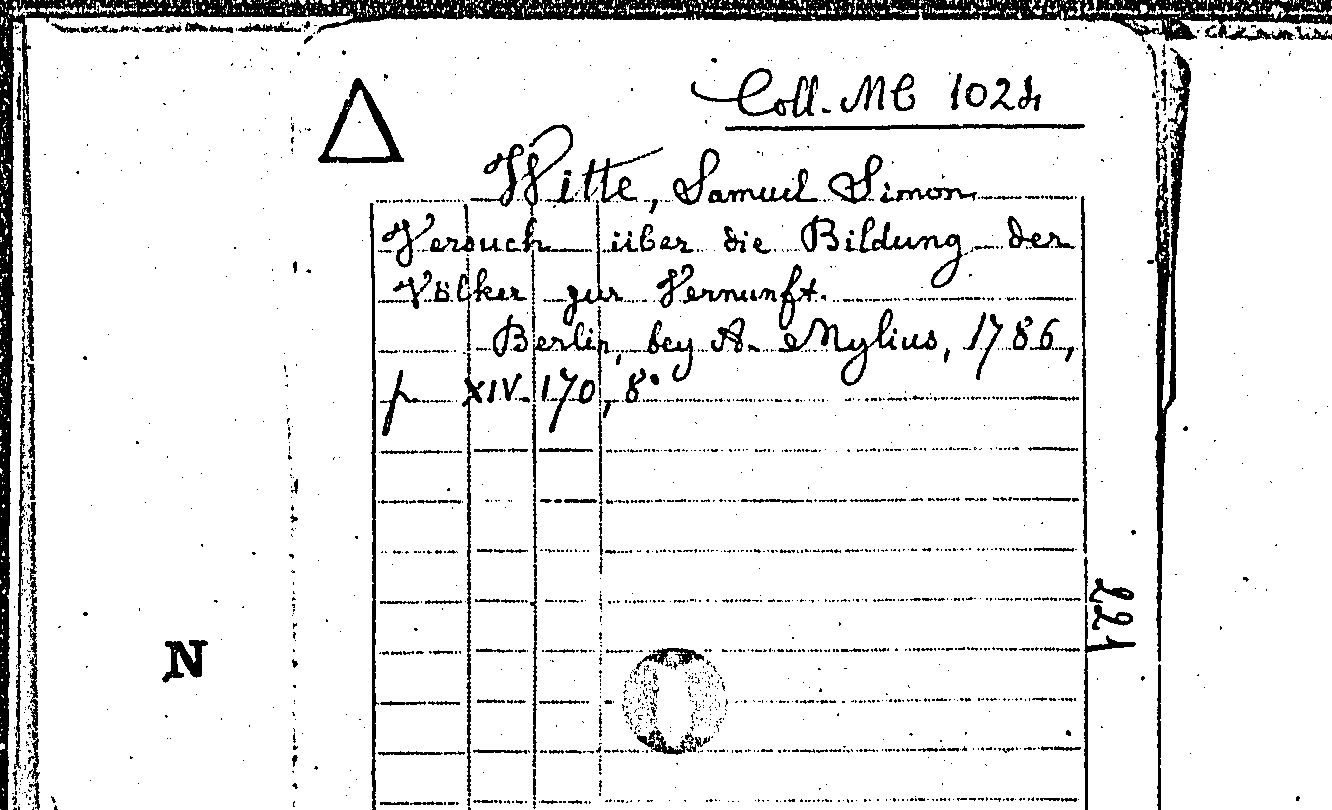 Coll. MC 1024
Witte, Samuel Simon
Versuch über die Bildung der
Völker zur Vernunft.
Berlin, bey A. Mylius, 1786,
p XIV. 170, 8°
221
N